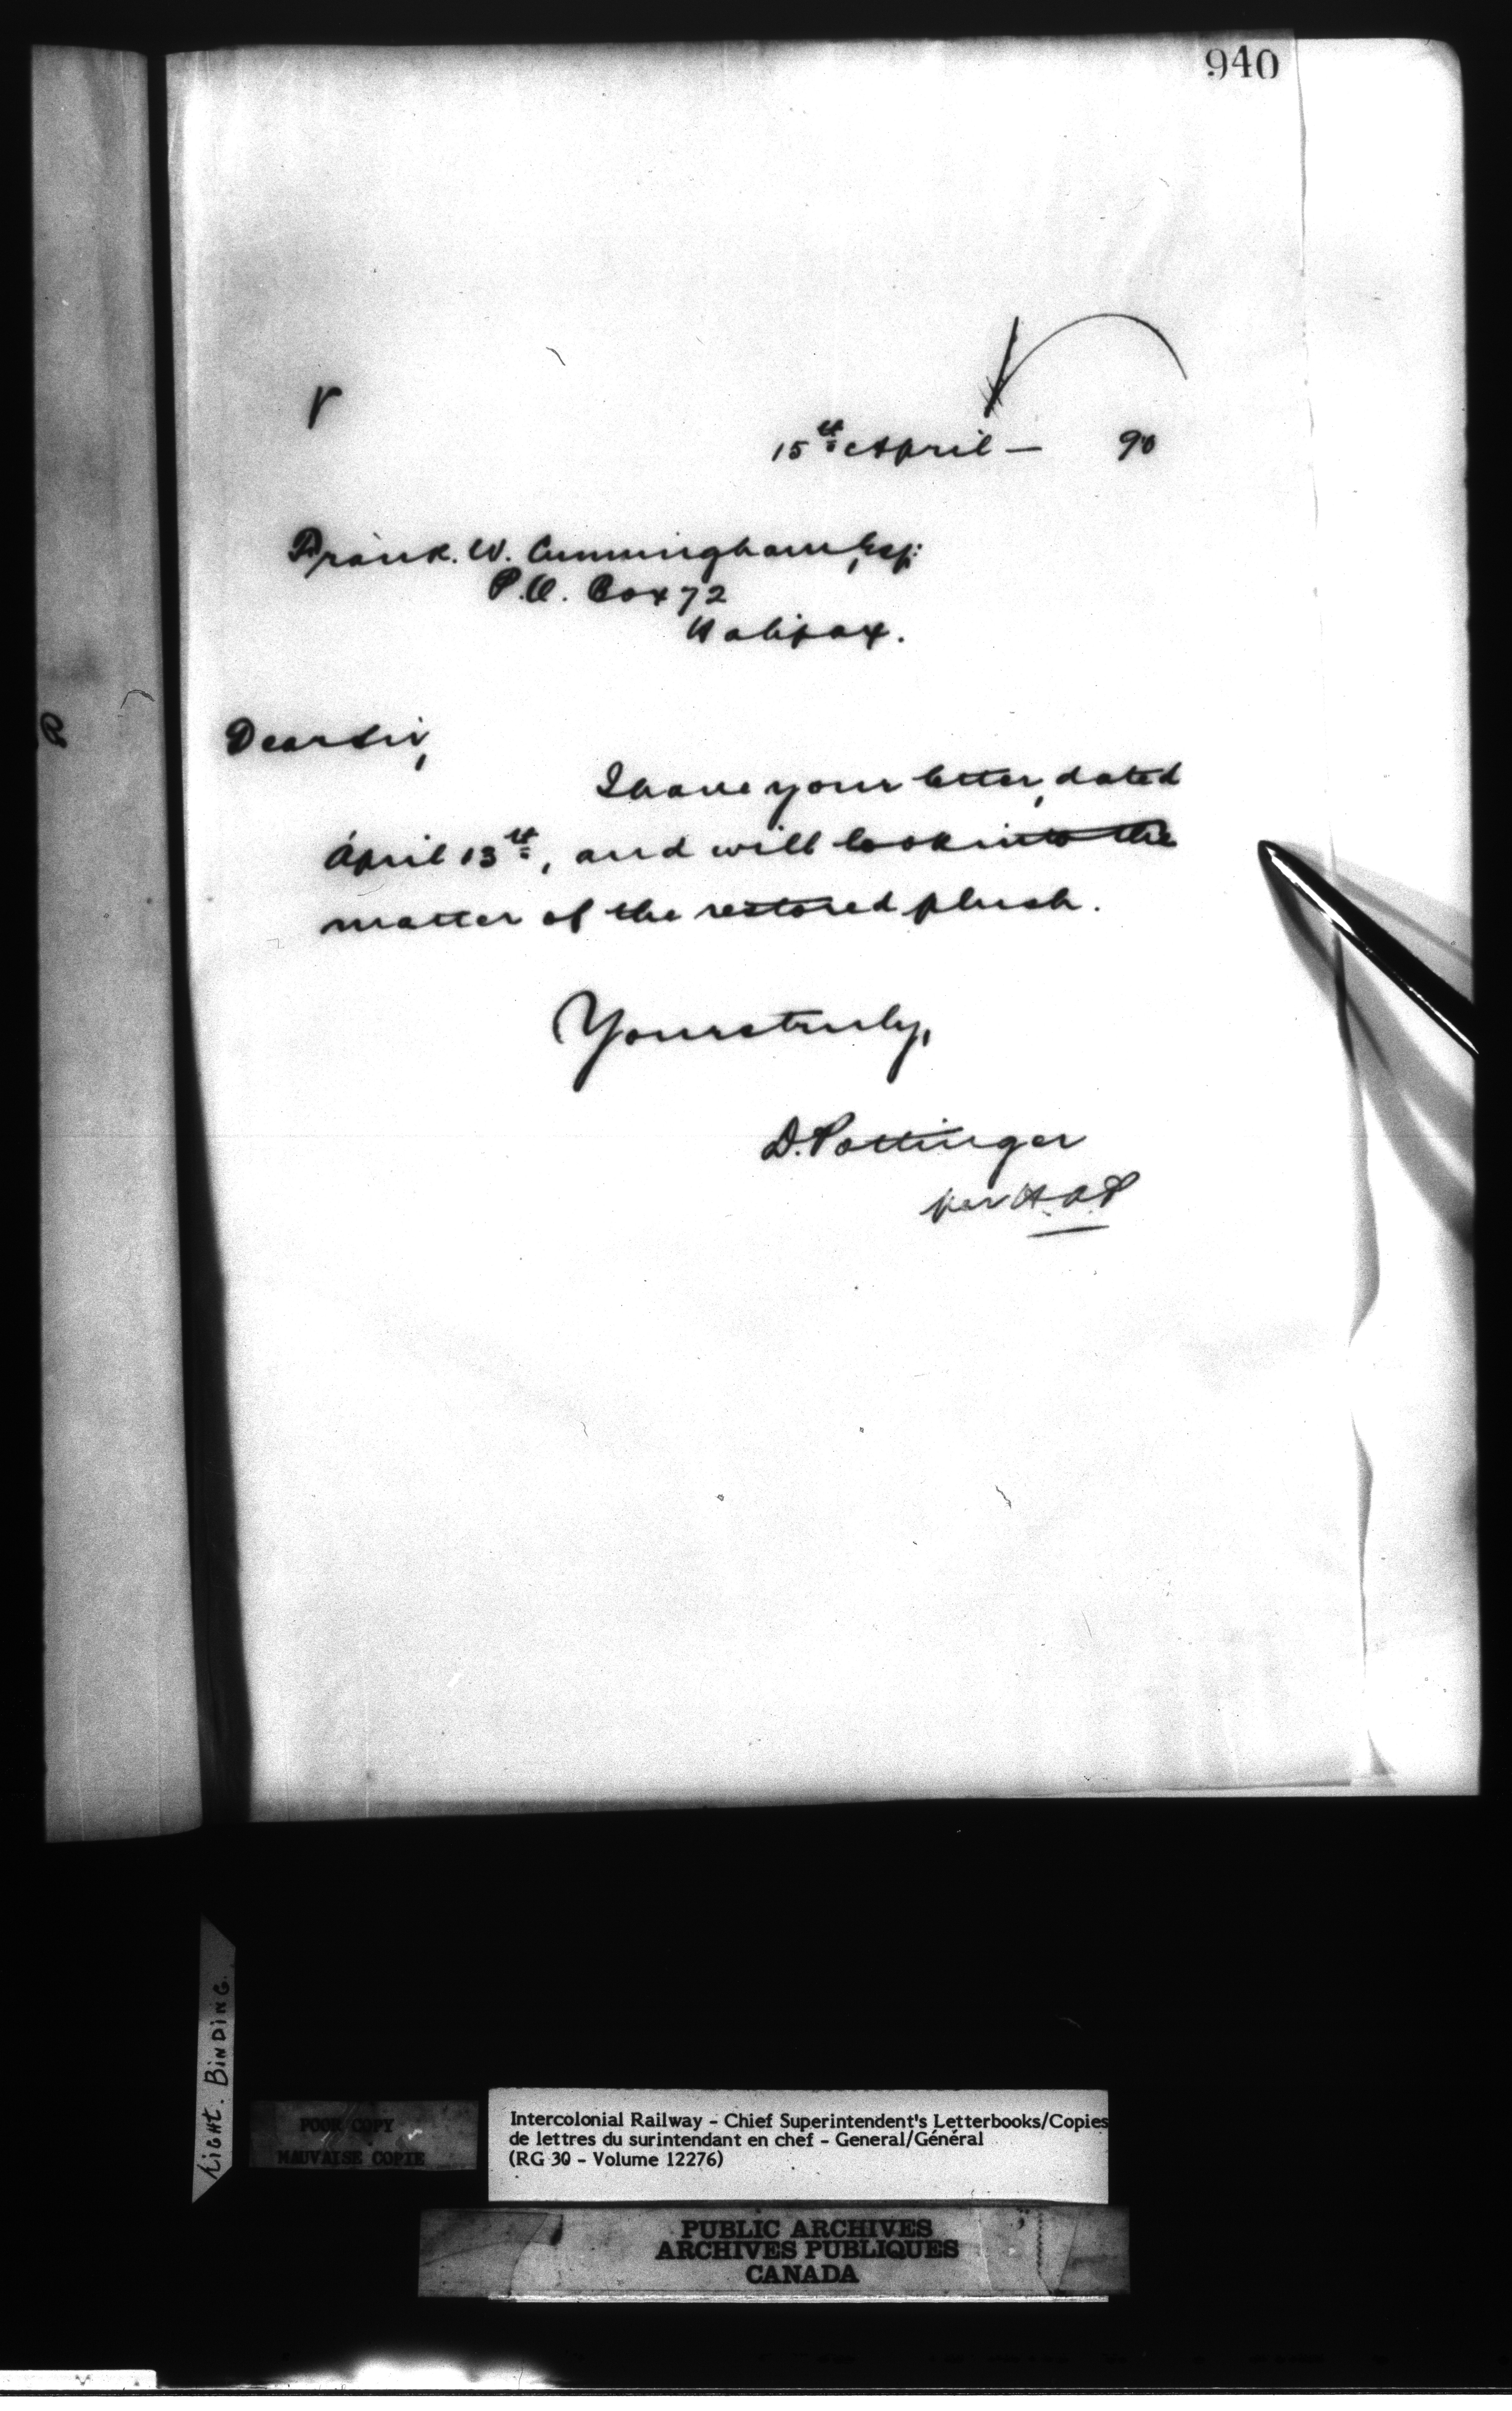 940
15th April — 90
Frank. W. Cunningham, Esq:
P.O. Box 72
Halifax.
Dear Sir,
I have your letter, dated
April 13th, and will look into the
matter of the restored plush.
Yours truly,
D. Pottinger
per H.A.P
Tight. Binding.
POOR COPY
MAUVAISE COPIE
Intercolonial Railway - Chief Superintendent's Letterbooks/Copies
de lettres du surintendant en chef - General/Général
(RG 30 - Volume 12276)
PUBLIC ARCHIVES
ARCHIVES PUBLIQUES
CANADA